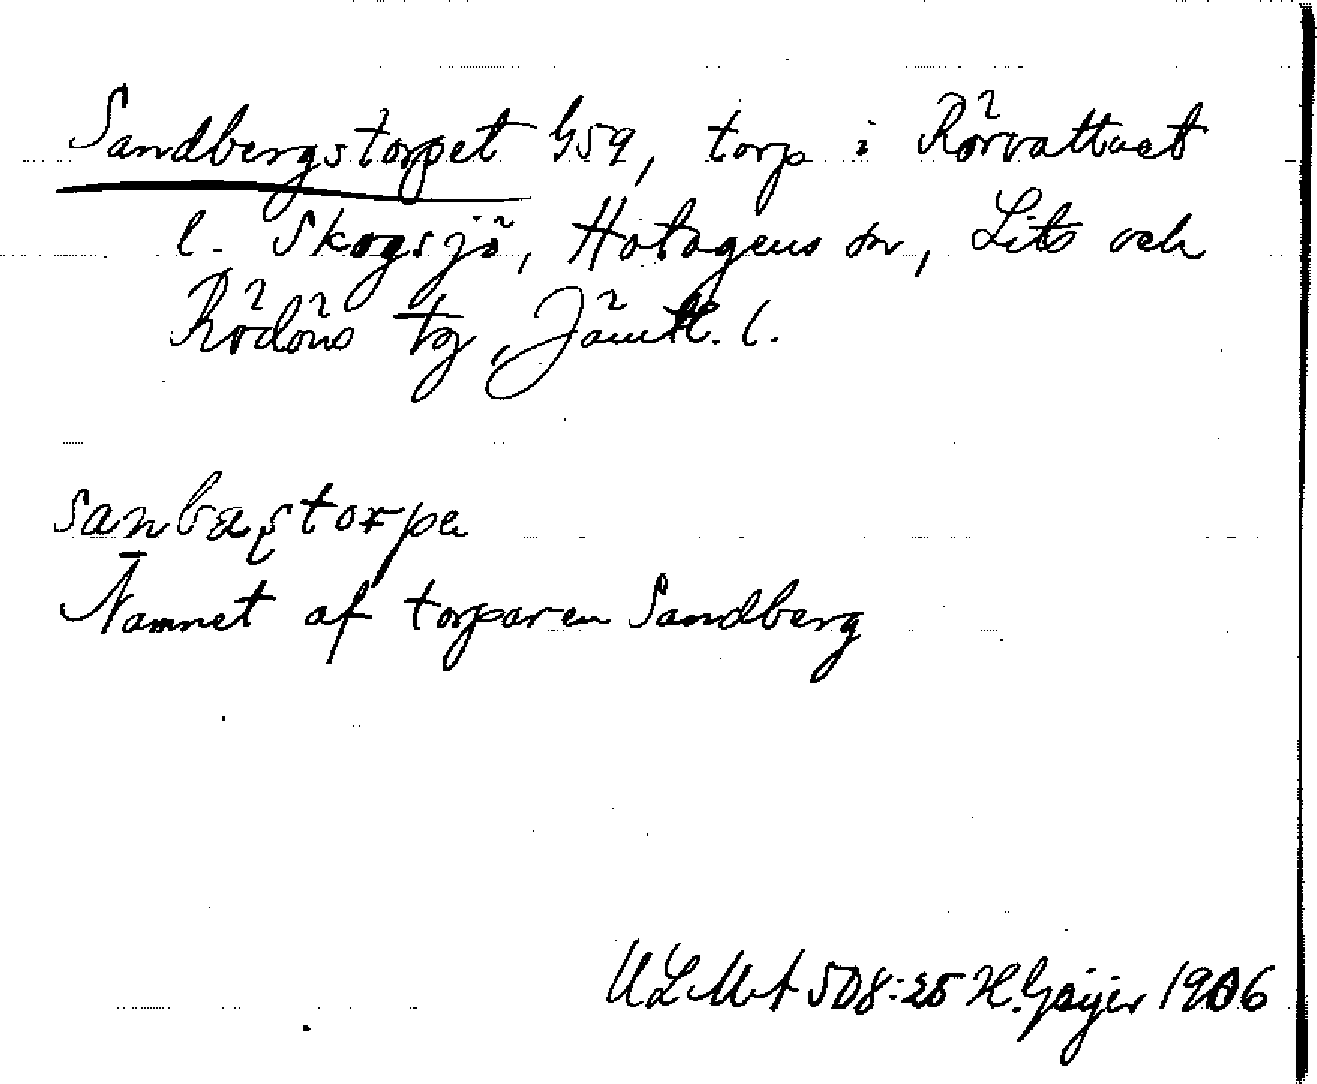 Sandbergstorpet G59, torp i Rörvattnet
l. Skogsjö, Hotagens sn, Lits och
Rödöns tg, Jämtl. l.
sanbæʂtorpe
Namnet af torparen Sandberg
ULMA 508:25 H. Geijer 1906